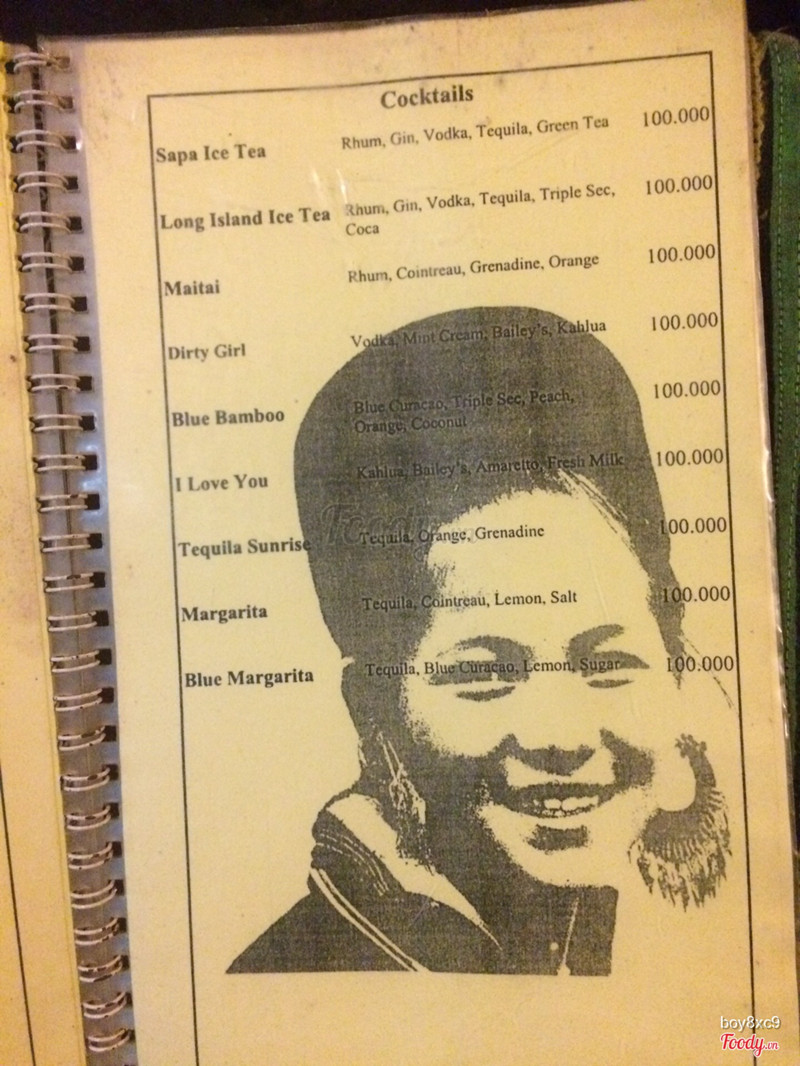 Cocktails
Sapa Ice Tea Rhum, Gin, Vodka, Tequila, Green Tea 100.000
Long Island Ice Tea Rhum, Gin, Vodka, Tequila, Triple Sec, 100.000
Coca
Maitai Rhum, Cointreau, Grenadine, Orange 100.000
Dirty Girl Vodka, Mint Cream, Bailey's, Kahlua 100.000
Blue Bamboo Blue Curacao, Triple Sec, Peach, 100.000
Orange, Coconut
I Love You Kahlua, Bailey's, Amaretto, Fresh Milk 100.000
Tequila Sunrise Tequila, Orange, Grenadine 100.000
Margarita Tequila, Cointreau, Lemon, Salt 100.000
Blue Margarita Tequila, Blue Curacao, Lemon, Sugar 100.000
Foody
boy8xc9
Foody.vn